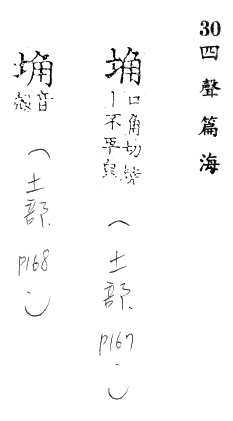 30四聲篇海
埆
口角切墝
｜不平皃
（土部 P167.）
音
殼
（土部 P168.）